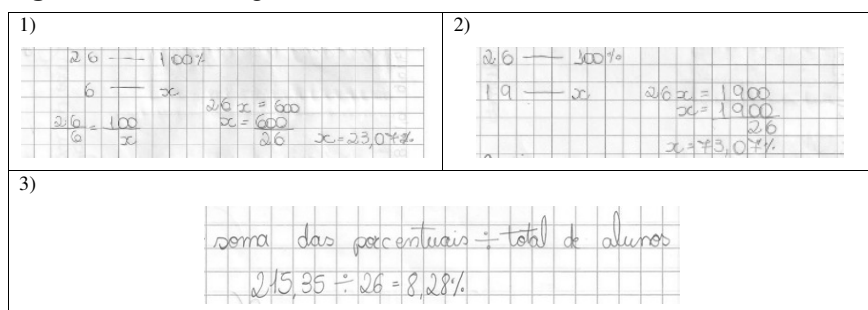 1)
26 — 100%
6 — x
26/6 = 100/x
26x = 600
x = 600/26
x = 23,07%
2)
26 — 100%
19 — x
26x = 1900
x = 1900/26
x = 73,07%
3)
soma das porcentuais ÷ total de alunos
215,35 ÷ 26 = 8,28%